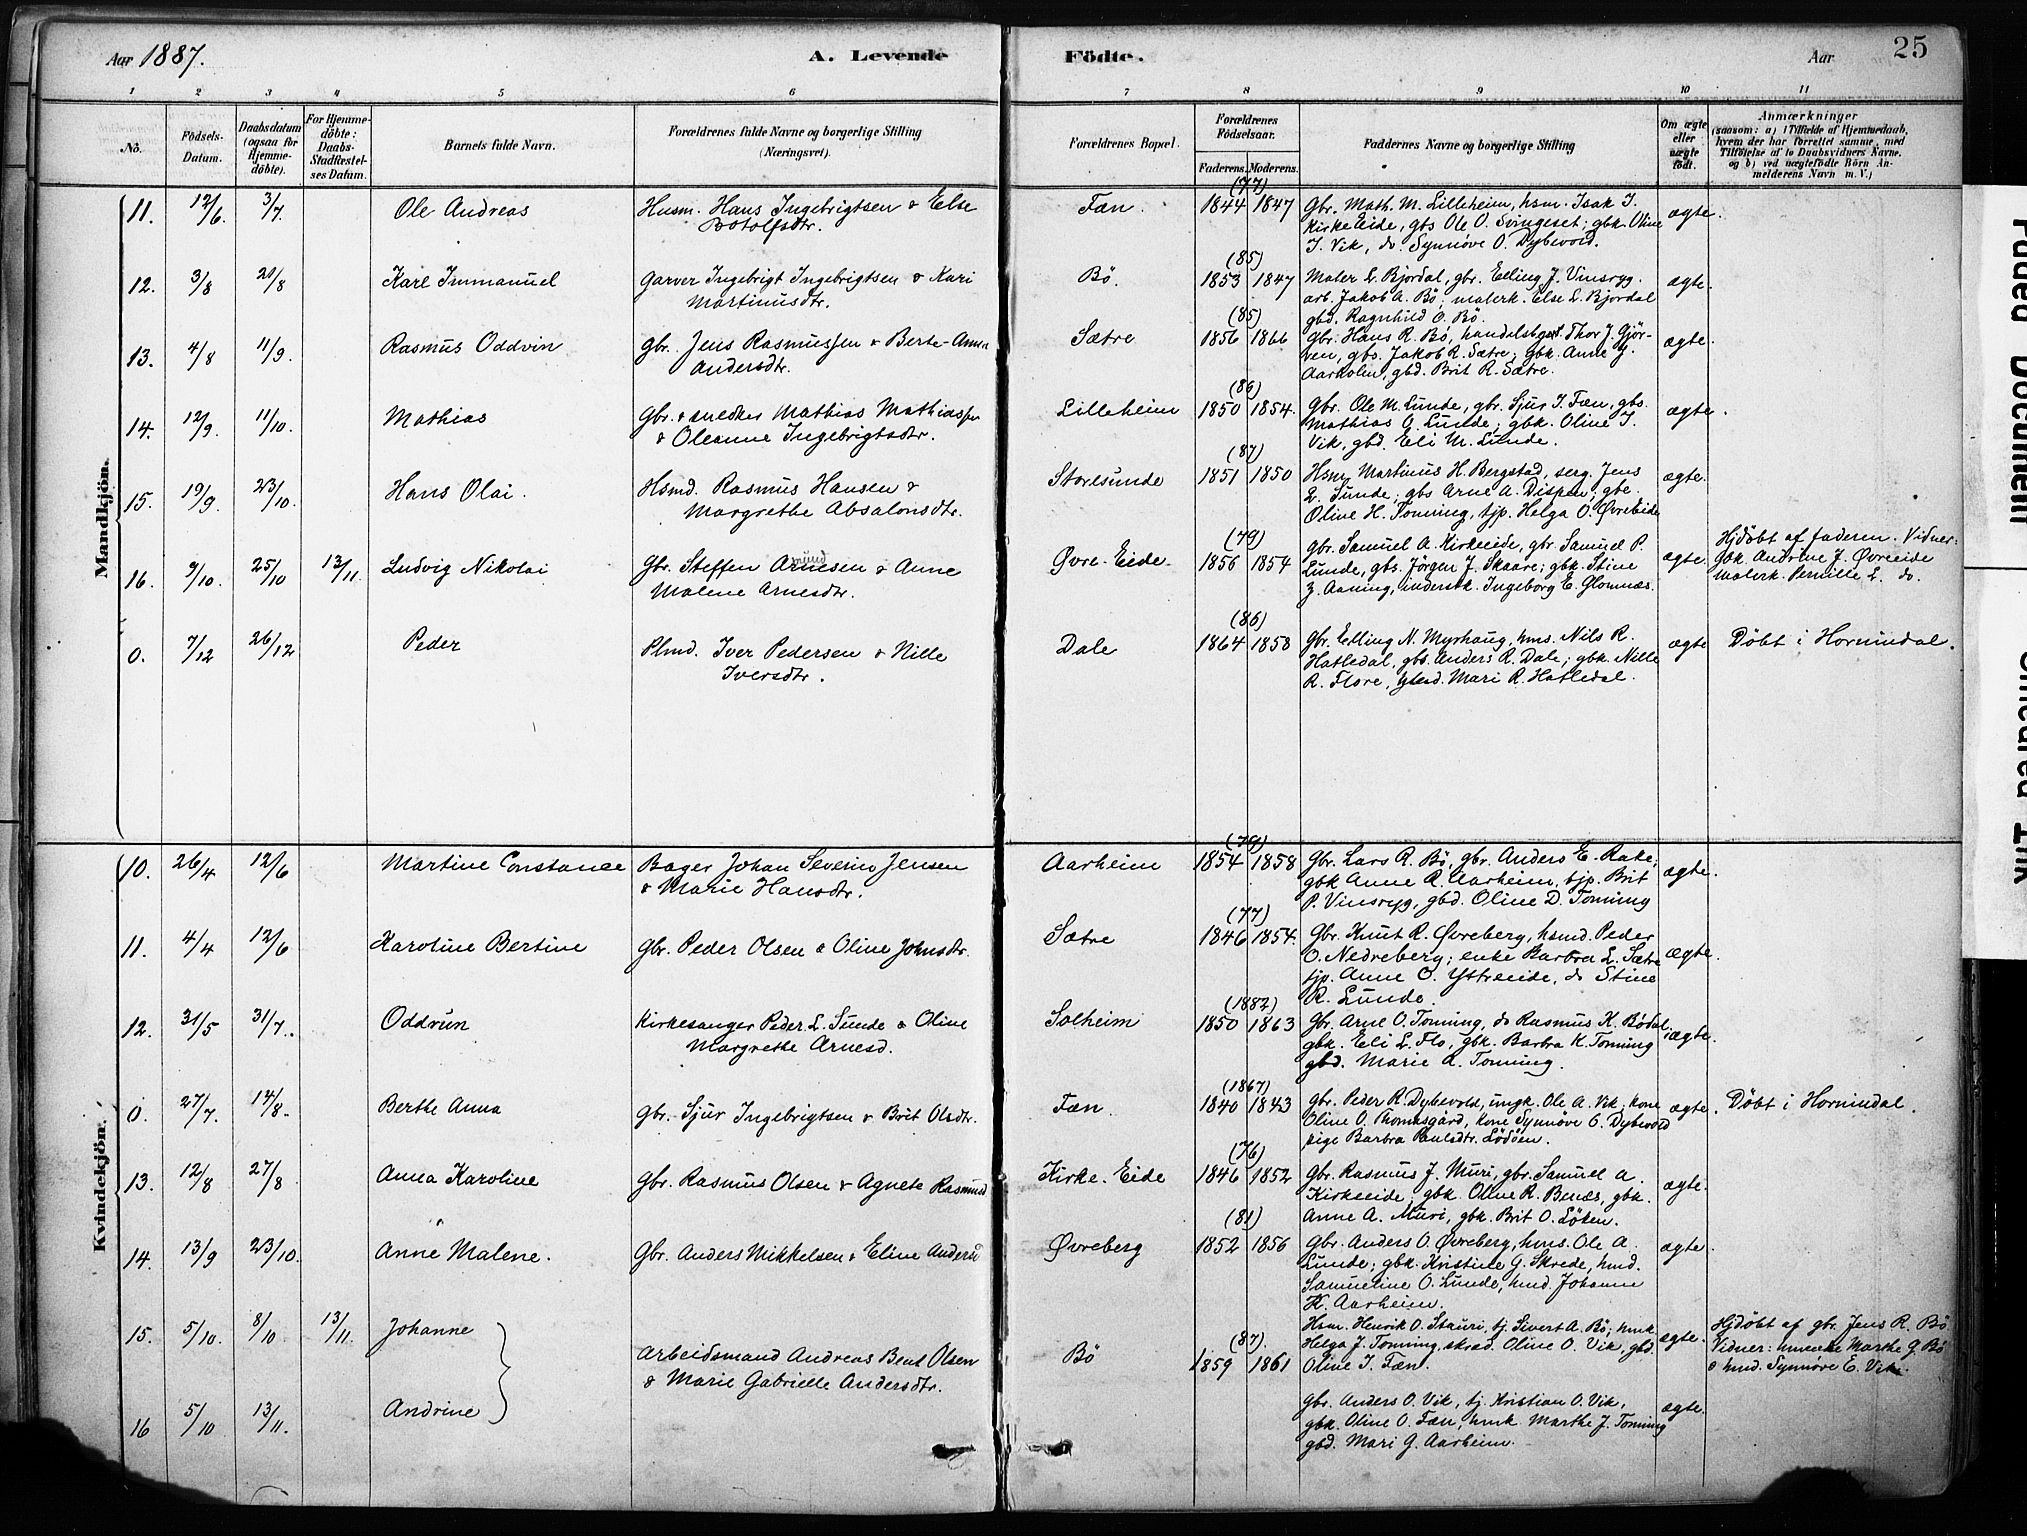 Aar 1887.
A. Levende
Födte.
Aar
25
1 2 3 4 5 6 7 8 9 10 11
No.
Födsels-Datum.
Daabsdatum (ogsaa for Hjemmedöbte).
For Hjemmedöbte: Daabs-Stadfæstelses Datum.
Barnets fulde Navn.
Forældrenes fulde Navne og borgerlige Stilling (Næringsvei).
Forældrenes Bopæl.
Forældrenes Födselsaar.
Faderens. Moderens.
Faddernes Navne og borgerlige Stilling
Om ægte eller uægte födt.
Anmærkninger (saasom: a) i Tilfælde af Hjemmedaab, hvem der har forrettet samme, med Tilföielse af to Daabsvidners Navne, og b) ved uægtefödte Börn Anmelderens Navn m. V.)
Mandkjön.
11. 12/6. 3/7. Ole Andreas Husm. Hans Ingebrigtsen & Else Fæn. (77) 1844 1847 Gbr. Math. M. Lilleheim, hsm. Isak I. ægte.
Botolfsdtr. Kirke Eide, gbs Ole O. Svingeset; gbk. Oline
I. Vik, do. Synnøve O. Dybevold.
12. 3/8 21/8 Karl Immanuel Garver Ingebrigt Ingebrigtsen & Kari Bö. (85) 1853 1847 Maler L. Bjordal, gbr. Elling J. Vinsryg. ægte.
Martinusdtr. arb. Jakob A. Bö; malerk. Else L. Bjordal
gbd. Ragnhild O. Bö.
13. 4/8 11/9. Rasmus Oddvin gbr. Jens Rasmussen & Berte-Anna Sætre (85) 1856 1866 gbr. Hans R. Bö, handelsbgst. Thor J. Gjör- ægte.
Andersdtr. ven, gbs. Jakob R. Sætre; gbk. Anne J.
Aarholen, gbd. Brit R. Sætre.
14. 12/9. 11/10. Mathias Gbr. & snedker Mathias Mathiassen Lilleheim (86) 1850 1854. Gbr. Ole M. Lunde, gbr. Sjur I. Fæn, gbs. ægte.
& Oleanne Ingebrigtsdtr. Mathias O. Lunde; gbk. Oline I.
Vik, gbd. Eli M. Lunde.
15. 19/9. 23/10. Hans Olai. Hsmd. Rasmus Hansen & Storesunde (87) 1851 1850 Hsm. Martinus H. Bergstad, serg. Jens ægte.
Margrethe Absalonsdtr. L. Sunde; gbs Arne A. Dispen; gbe.
Oline H. Tonning, tjp. Helga O. Øvreeide
16. 9/10. 25/10 13/11. Ludvig Nikolai Gbr. Steffen Arnesen & Anne Øvre-Eide. (79) 1856 1854 gbr. Samuel A. Kirkeeide, gbr. Samuel P. ægte. Hjdöbt af faderen. Vidner:
Malene Arnesdtr. Lunde, gbs. Jörgen J. Skaare; gbk. Stine Gbk. Andrine J. Øvreeide
Z. Aaning, inderstk. Ingeborg E. Glomnæs. Malerk. Pernille L. do.
0. 7/12 26/12 Peder Plmd. Iver Pedersen & Nille Dale (86) 1864 1858 Gbr. Elling N. Myrhaug, hms. Nils R. ægte Döbt i Hornindal.
Iversdtr. Hatledal, gbs. Anders R. Dale; gbk. Nille
R. Flore, Mari R. Hatledal.
Kvindekjön.
10. 26/4 12/6 Martine Constance Bager Johan Severin Jensen Aarheim (79) 1854 1858 Gbr. Lars R. Bö, gbr. Anders E. Rake; ægte.
& Marie Hansdtr. gbk Anne R. Aarheim, tjp. Brit
P. Vinsryg, gbd. Oline D. Tonning
11. 4/4 12/6 Karoline Bertine Gbr. Peder Olsen & Oline Johnsdtr. Sætre (77) 1846 1854. Gbr. Knut R. Øvreberg, hsmd. Peder ægte.
O. Nedreberg; enke Barbra L. Sætre
tjp. Anne O. Ytreeide, do Stine
R. Lunde.
12. 31/5 31/7. Oddrun Kirkesanger Peder L. Sunde & Oline Solheim (1882) 1850 1863 Gbr. Arne O. Tonning, do Rasmus K. Bödal; ægte.
Margrethe Arnesd. gbk. Eli L. Flo, gbk. Barbra K. Tonning
gbd. Marie A. Tonning.
0. 27/7. 14/8. Berthe Anna gbr. Sjur Ingebrigtsen & Brit Olsdtr. Fæn. (1867) 1840 1843 gbr. Peder R. Dybevold, ungk. Ole A. Vik; kone ægte. Döbt i Hornindal.
Oline O. Thomasgård, kone Synnøve O. Dybevold
pige Barbra Paulsdtr. Lödöen.
13. 12/8 27/8 Anna Karoline gbr. Rasmus Olsen & Agnete Rasmusd Kirke-Eide (76) 1846 1852 Gbr. Rasmus J. Muri, gbr. Samuel A. ægte.
Kirkeeide; gbk. Oline R. Benæs, gbk.
Anne A. Muri, gbk. Brit O. Löken.
14. 13/9 23/10. Anne Malene. Gbr. Anders Mikkelsen & Eline Andersd Øvreberg (81) 1852 1856 Gbr. Anders O. Øvreberg, hms. Ole A. ægte.
Lunde; gbk. Kristine G. Skrede, hmd.
Samueline O. Lunde, hmd. Johanne
K. Aarheim.
15. 5/10. 8/10 13/11. Johanne Arbeidsmand Andreas Bent Olsen Bö (87) 1859 1861 Hsm. Henrik O. Stauri, tj. Sivert A. Bö; hmk ægte. Hjdöbt af gbr. Jens R. Bö
& Marie Gabrielle Andersdtr. Helga J. Tonning, Oline O. Vik, gbd Vidner: hmenke Marthe G. Bö
Oline I. Fæn. & hmd. Synnøve E. Vik.
16 5/10 13/11. Andrine Gbr. Anders O. Vik, tj. Kristian O. Vik, ægte.
gbk. Oline O. Fæn, hmk. Marthe J. Tonning
gbd. Mari G. Aarheim.
Faded Document
Smeared Ink